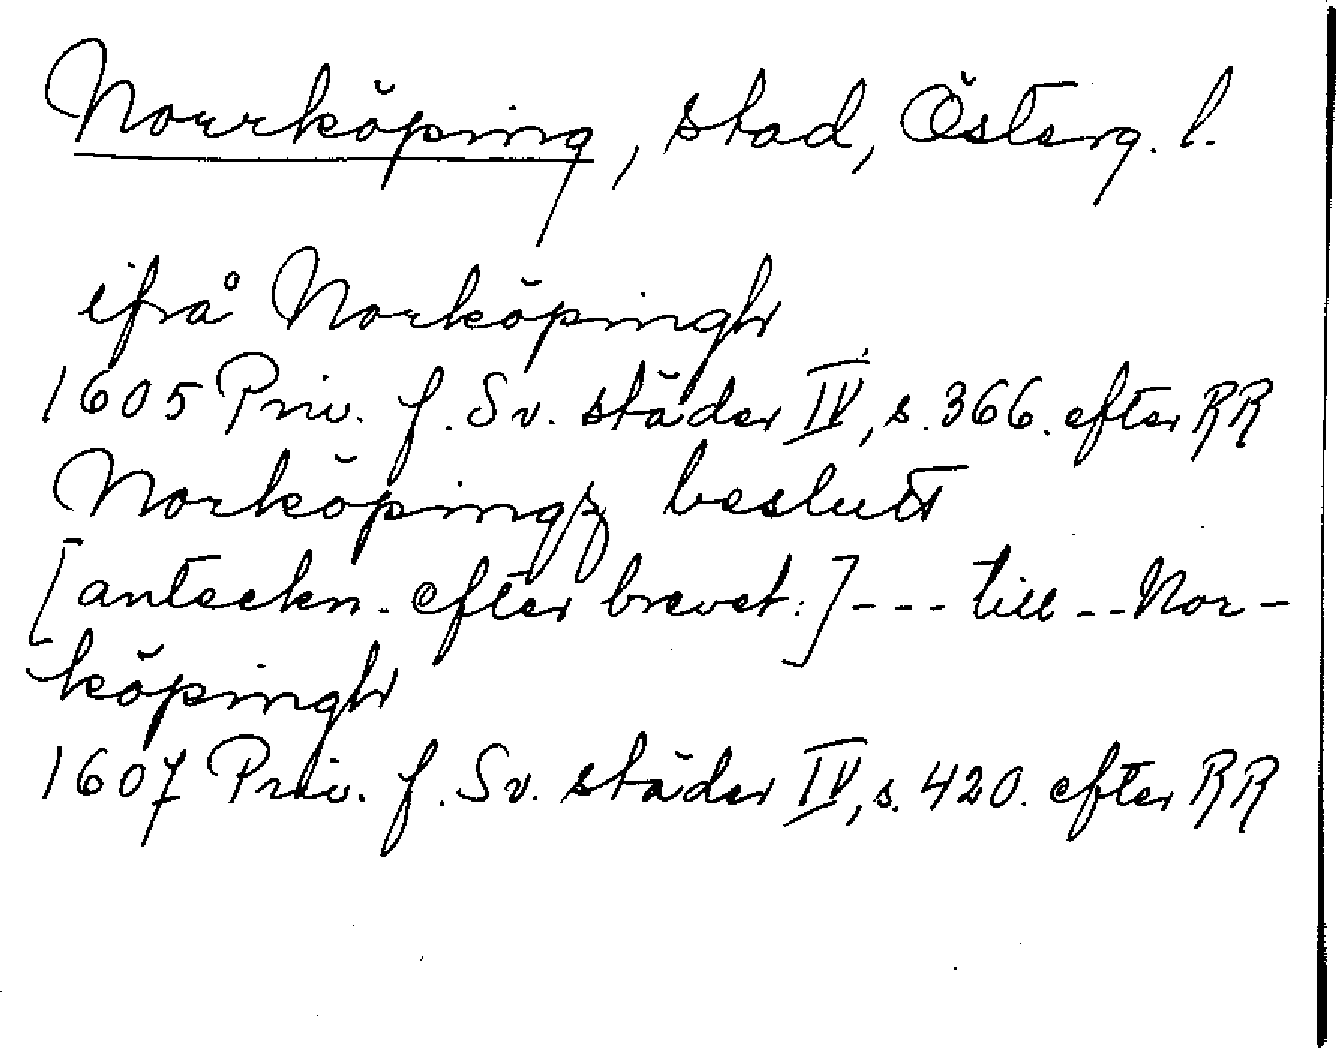 Norrköping, stad, Österg. l.
ifrå Norköpingh
1605 Priv. f. Sv. städer IV, s. 366. efter RR
Norköpingz beslutt
[anteckn. efter brevet:] --- till -- Nor-
köpingh
1607 Priv. f. Sv. städer IV, s. 420. efter RR